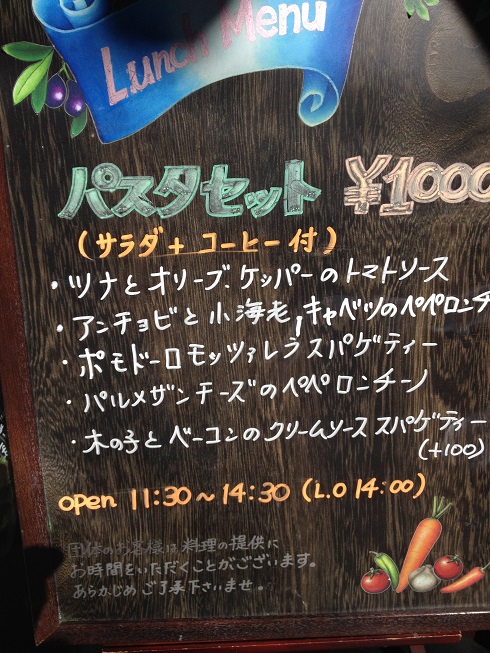 Lunch Menu
パスタセット ¥1000
(サラダ + コーヒー付)
・ツナとオリーブ、ケッパーのトマトソース
・アンチョビと小海老、キャベツのペペロンチ
・ポモドーロモッツァレラスパゲティー
・パルメザンチーズのペペロンチーノ
・木の子とベーコンのクリームソーススパゲティー
(+100)
open 11:30～14:30 (L.O 14:00)
団体のお客様は料理の提供に
お時間をいただくことがございます。
あらかじめご了承下さいませ。